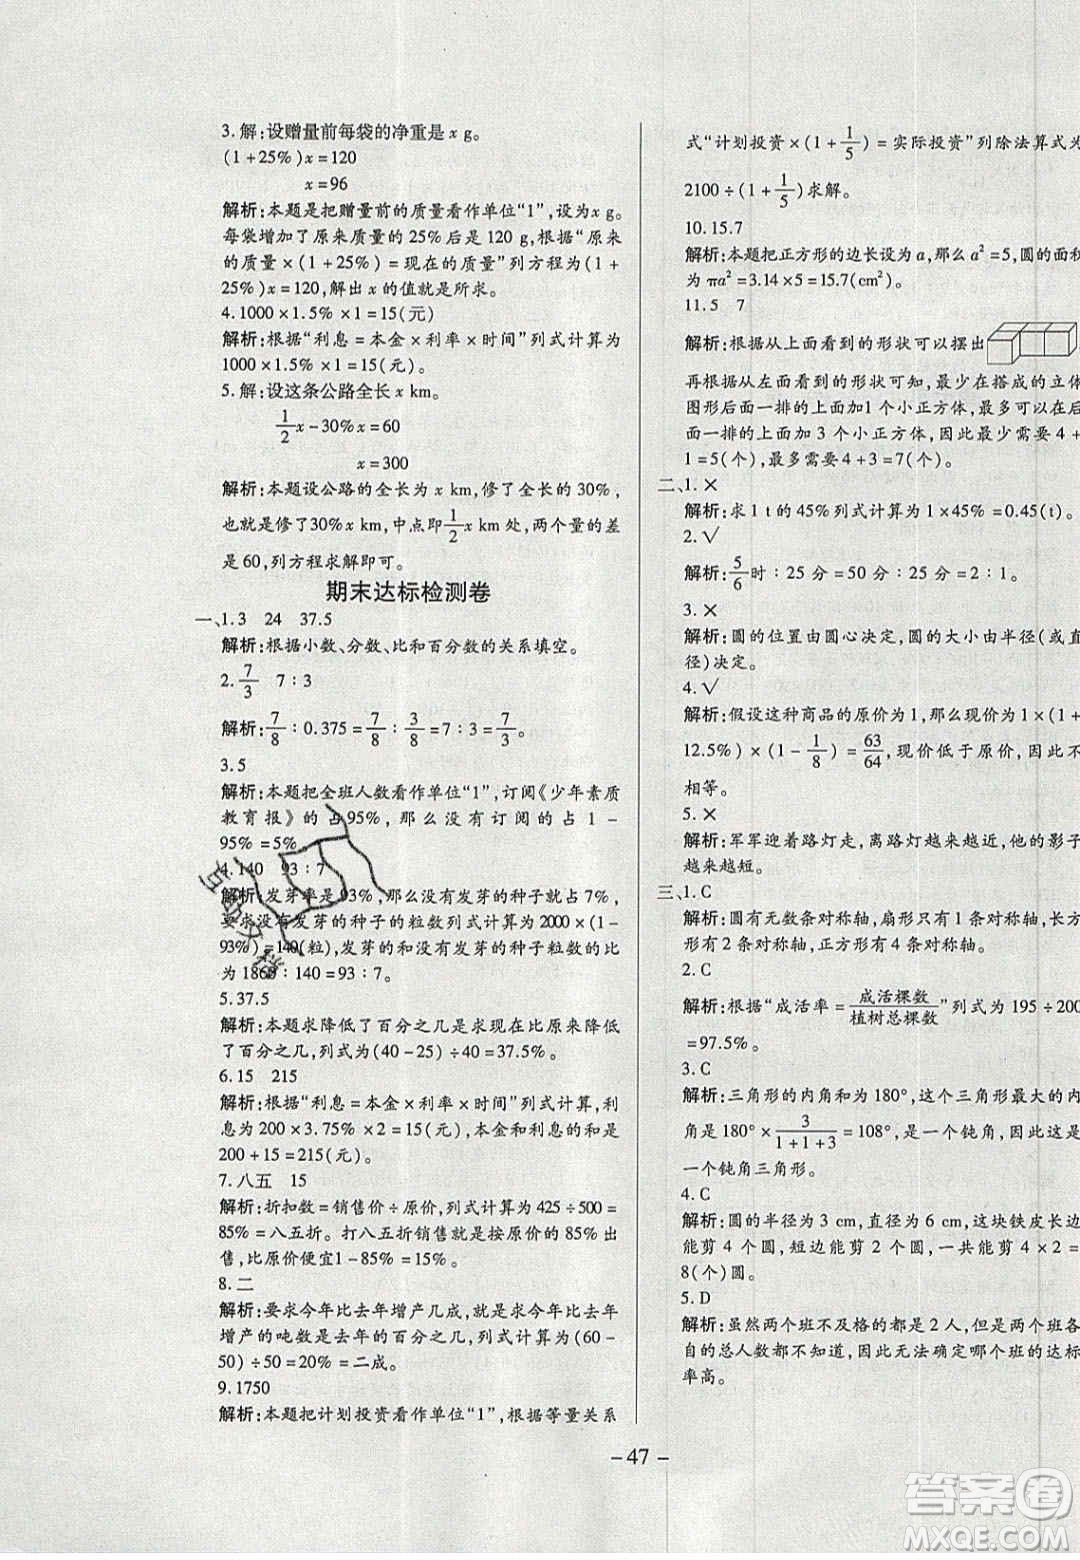 3.解:设赠量前每袋的净重是 x g。
(1+25%)x=120
x=96
解析:本题是把赠量前的质量看作单位“1”,设为x g。
每袋增加了原来质量的25%后是 120 g,根据“原来
的质量×(1+25%)=现在的质量”列方程为(1+
25%)x=120,解出 x 的值就是所求。
4.1000×1.5%×1=15(元)
解析:根据“利息=本金×利率×时间”列式计算为
1000×1.5%×1=15(元)。
5.解:设这条公路全长 x km。
1/2x-30%x=60
x=300
解析:本题设公路的全长为 x km,修了全长的30%,
也就是修了30%x km,中点即1/2x km 处,两个量的差
是 60,列方程求解即可。
期末达标检测卷
一、1.3 24 37.5
解析:根据小数、分数、比和百分数的关系填空。
2.7/3 7∶3
解析:7/8∶0.375=7/8∶3/8=7∶3=7/3。
3.5
解析:本题把全班人数看作单位“1”,订阅《少年素质
教育报》的占95%,那么没有订阅的占 1-
95%=5%。
4.140 93∶7
解析:发芽率是93%,那么没有发芽的种子就占7%,
要求没有发芽的种子的粒数列式计算为2000×(1-
93%)=140(粒),发芽的和没有发芽的种子的比
为1860∶140=93∶7。
5.37.5
解析:本题求降低了百分之几是求现在比原来降低
了百分之几,列式为(40-25)÷40=37.5%。
6.15 215
解析:根据“利息=本金×利率×时间”列式计算,利
息为200×3.75%×2=15(元)。本金和利息的和是
200+15=215(元)。
7.八五 15
解析:折扣数=销售价÷原价,列式计算为 425÷500=
85%=八五折。打八五折销售是按原价的85%出
售,比原价便宜1-85%=15%。
8.二
解析:要求今年比去年增产几成,就是求今年比去年
增产的吨数是去年的百分之几,列式计算为(60-
50)÷50=20%=二成。
9.1750
解析:本题把计划投资看作单位“1”,根据等量关系
式“计划投资×(1+1/5)=实际投资”列除法算式为
2100÷(1+1/5)求解。
10.15.7
解析:本题把正方形的边长设为 a,那么 a²=5,圆的面积
为 πa²=3.14×5=15.7(cm²)。
11.5 7
解析:根据从上面看到的形状可以摆出
再根据从左面看到的形状可知,最少在搭成的立体
图形后面一排的上面加1个小正方体,最多可以在
后面一排的上面加 3 个小正方体,因此最少需要 4+
1=5(个),最多需要 4+3=7(个)。
二、1.×
解析:求1 t 的 45%列式计算为 1×45%=0.45(t)。
2.√
解析:5/6时∶25 分=50 分∶25 分=2∶1。
3.×
解析:圆的位置由圆心决定,圆的大小由半径(或直
径)决定。
4.√
解析:假设这种商品的原价为1,那么现价为1×(1+
12.5%)×(1-1/8)=63/64,现价低于原价,因此不
相等。
5.×
解析:军军迎着路灯走,离路灯越来越近,他的影子
越来越短。
三、1.C
解析:圆有无数条对称轴,扇形只有1条对称轴,长方
形有2条对称轴,正方形有4条对称轴。
2.C
解析:根据“成活率=成活棵数/植树总棵数”列式为 195÷200
=97.5%。
3.C
解析:三角形的内角和为180°,这个三角形最大的内
角是180°×3/(1+1+3)=108°,是一个钝角,因此这是
一个钝角三角形。
4.C
解析:圆的半径为3 cm,直径为6 cm,这块铁皮长边
能剪 4 个圆,短边能剪 2 个圆,一共能剪 4×2=
8(个)圆。
5.D
解析:虽然两个班不及格的都是 2 人,但两个班各
自的总人数都不知道,因此无法确定哪个班的达标
率高。
-47-
答案圈
MXQE.COM